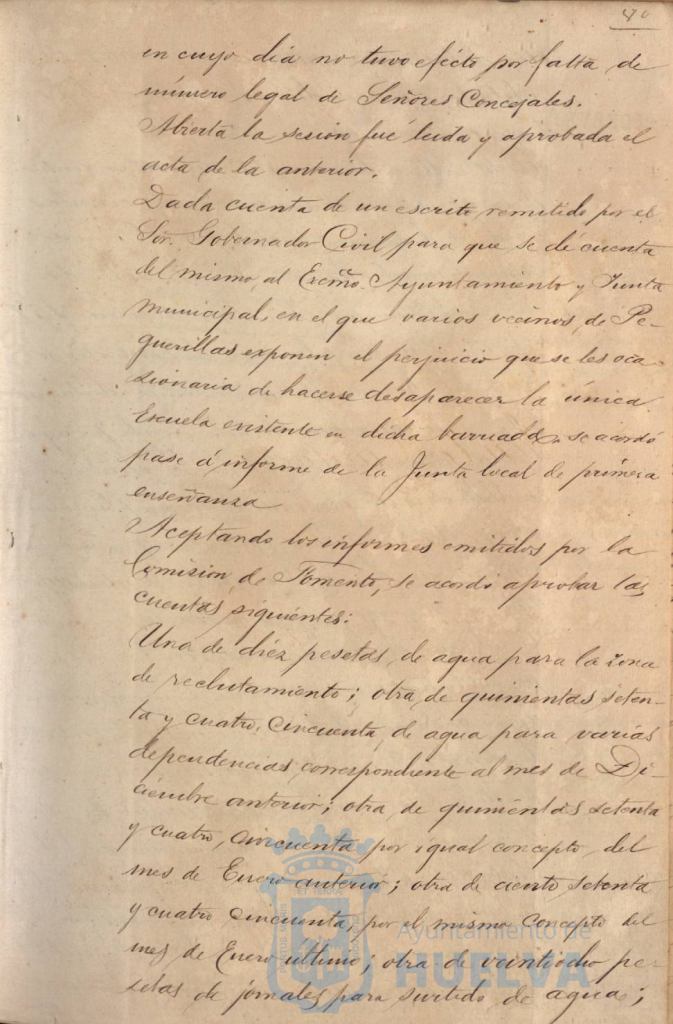 70
en cuyo dia no tuvo efécto por falta de
número legal de Señores Concejales.
Abierta la sesion fué leida y aprobada el
acta de la anterior.
Dada cuenta de un escrito remitido por el
Sor. Gobernador Civil, para que se dé cuenta
del mismo, al Excmo. Ayuntamiento y Junta
municipal, en el que varios vecinos, de Pe-
guerillas exponen el perjuicio que se les oca-
sionaria de hacerse desaparecer la única
Escuela existente en dicha barriada, se acordó
pase á informe de la Junta local de primera
enseñanza
Aceptando los informes emitidos por la
Comision de Fomento, se acordó aprobar las
cuentas siguientes:
Una de diéz pesetas, de agua para la zona
de reclutamiento; otra, de quinientas seten-
ta y cuatro, cincuenta, de agua para varias
dependencias, correspondiente al mes de Di-
ciembre anterior; otra, de quinientas setenta
y cuatro, cincuenta, por igual concepto, del
mes de Enero anterior; otra de ciento setenta
y cuatro cincuenta, por el mismo concepto del
mes de Enero último; otra de veintiocho pe-
setas de jornales para surtido de aguas;
Ayuntamiento de
HUELVA